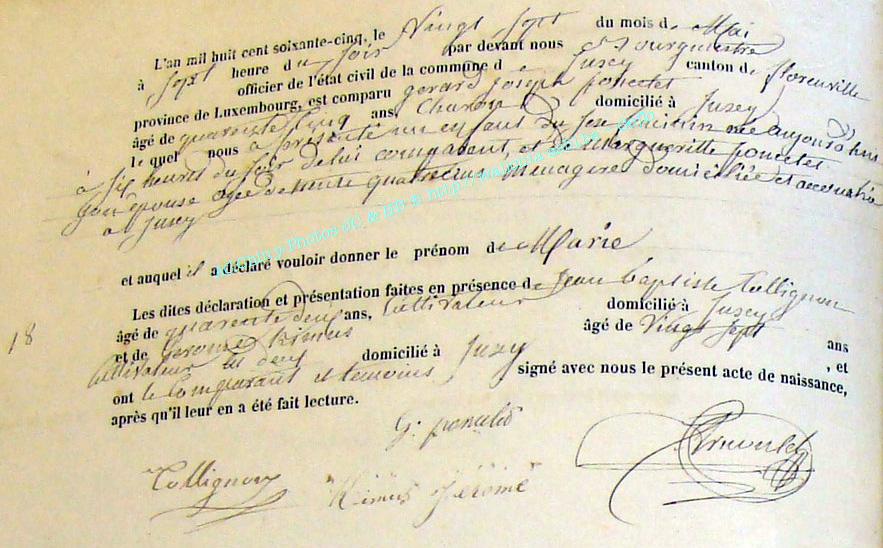 L'an mil huit cent soixante-cinq, le Vingt Sept du mois de Mai
à Sept heure du Soir par devant nous Bourgmestre
officier de l'état civil de la commune d Jusey canton de florenville
province de Luxembourg, est comparu gerard joseph poncelet
âgé de quarente Cinq ans, Charon domicilié à Jusey
le quel nous a présenté un enfant du Sexe feminin née aujourd'hui
à Six heures du Soir de lui comparant, et de Margueritte poncelet
Son epouse agée de trente quatre ans Menagere domiciliée et accouchée
a Jusey
et auquel il a déclaré vouloir donner le prénom de Marie
Les dites déclaration et présentation faites en présence de Jean baptiste Collignon
âgé de quarente deux ans, Cultivateur domicilié à Jusey
et de Jerome Kimus âgé de Vingt Sept ans
Cultivateur tous deux domicilié à Jusey , et
18
ont le Comparant et temoins signé avec nous le présent acte de naissance,
après qu'il leur en a été fait lecture.
G. poncelet
Collignon
Kimus Jérome